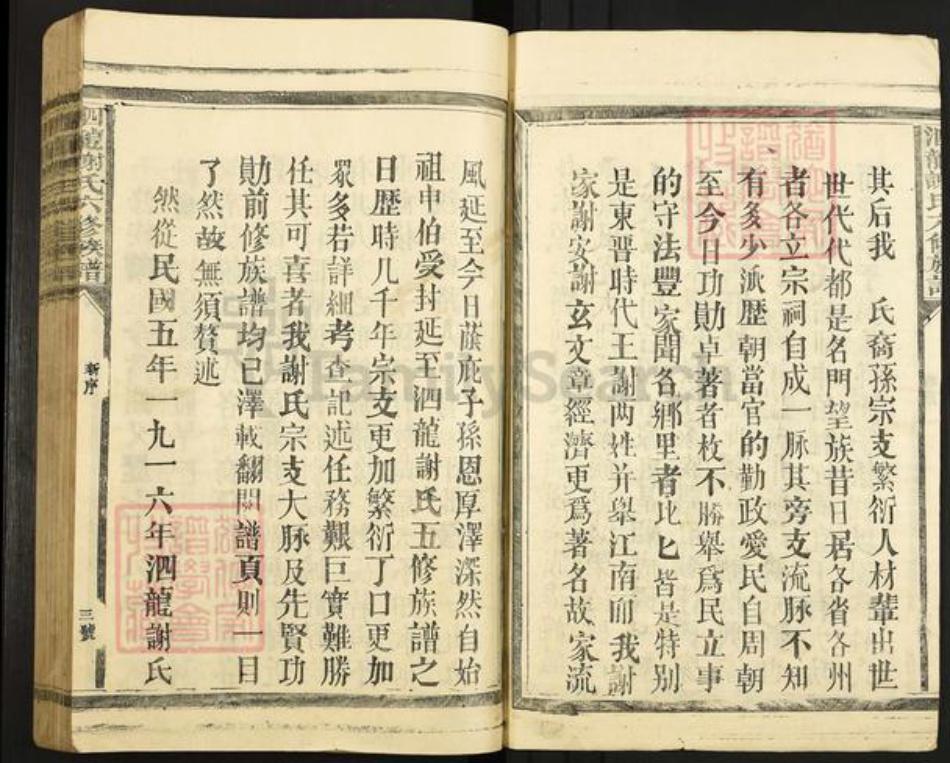 其后我 氏裔孫宗支繁衍人材輩出世
世代代都是名門望族昔日居各省各州
者各立宗祠自成一脉其旁支流脉不知
有多少派歷朝當官的勤政愛民自周朝
至今日功勛卓著者枚不勝舉爲民立事
的守法豐家聞各鄉里者比匕皆是特别
是東晋時代王謝两姓并舉江南而我謝
家謝安謝玄文章經濟更爲著名故家流
風延至今日蔭庇子孫恩厚澤深然自始
祖申伯受封延至泗龍謝氏五修族譜之
日歷時几千年宗支更加繁衍丁口更加
眾多若詳細考查記述任務艱巨實難勝
任其可喜者我謝氏宗支大脉及先賢功
勛前修族譜均已澤載翻閱譜頁則一目
了然故無須贅述
然從民國五年一九一六年泗龍謝氏
謝氏六修族譜
新序
三號
FamilySearch